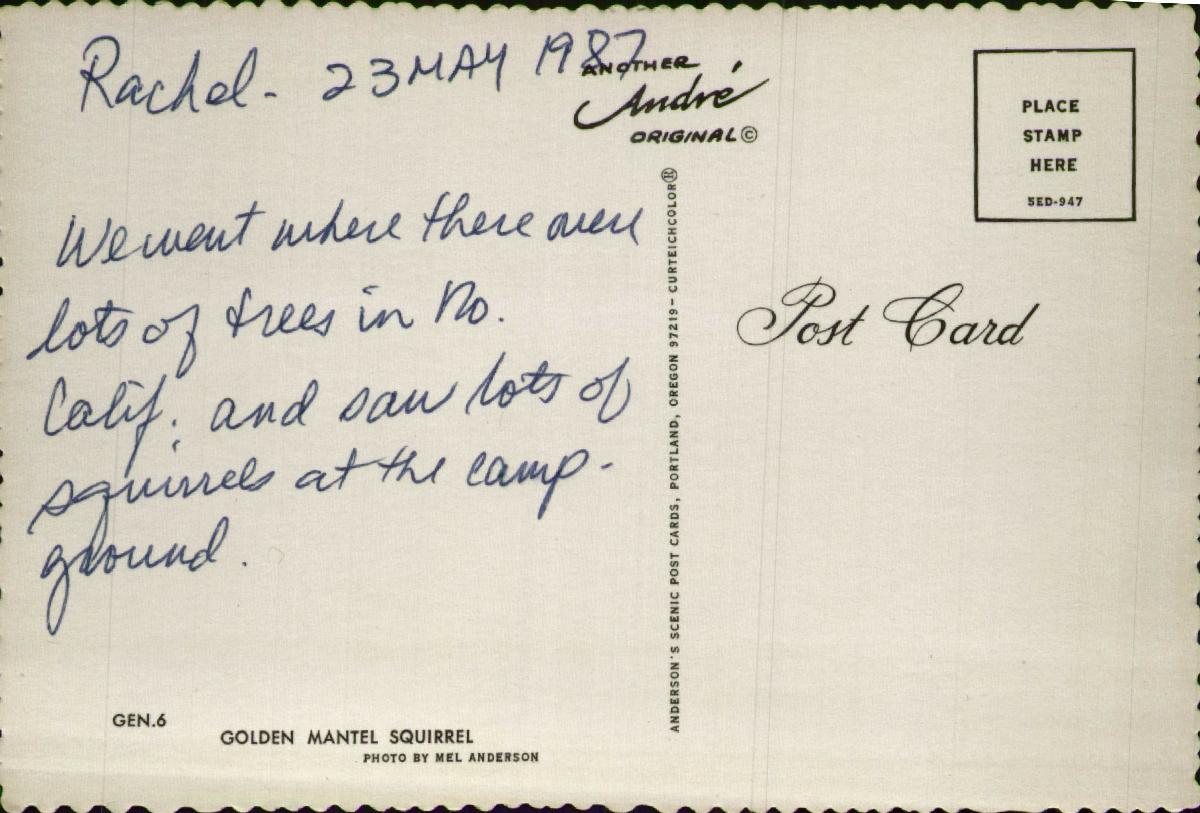 Rachel - 23 MAY 1987
ANOTHER
André
ORIGINAL©
PLACE
STAMP
HERE
5ED-947
We went where there were
lots of trees in No.
Calif. and saw lots of
squirrels at the camp-
ground.
Post Card
ANDERSON'S SCENIC POST CARDS, PORTLAND, OREGON 97219 - CURTEICHCOLOR®
GEN.6
GOLDEN MANTEL SQUIRREL
PHOTO BY MEL ANDERSON